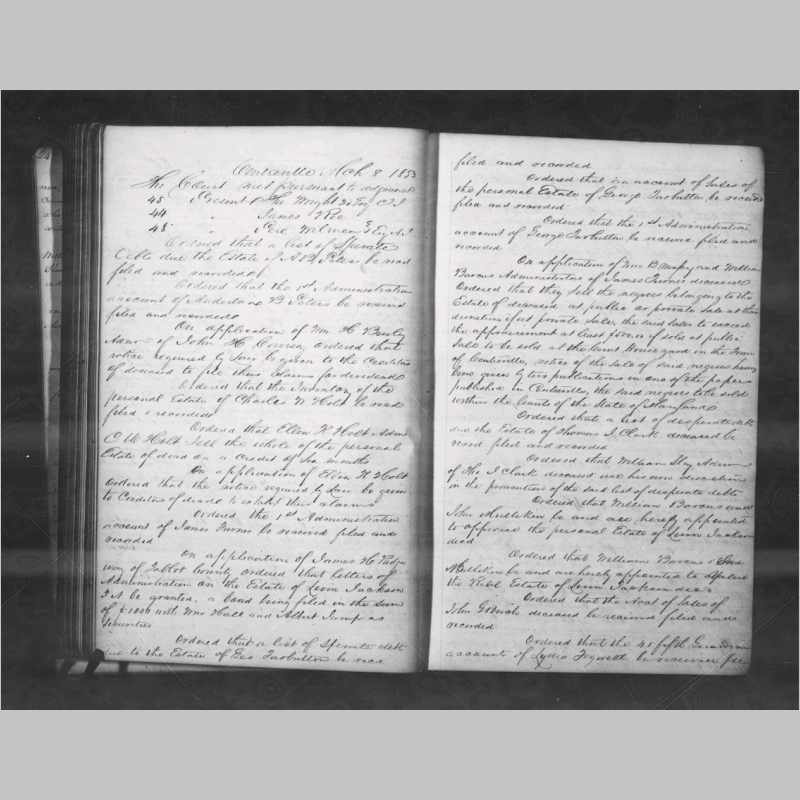 Centreville Mch 8 1853
The Court met pursuant to adjournt
45 Present Tho Wright 3d Esq C J
44 " James
45 " Geo Esq A J
Ordered that a list of Sperate
debts due the Estate of A B Peters be recd
filed and recorded
Ordered that the 1st Administration
account of B Peters be receivd
filed and recorded
On application of Wm H
Admr of John H ordered that
notice required by Law be given to the Creditors
of deceased to file their claims for dividend
Ordered that the Inventory of the
personal Estate of Charles N Holt be recd
filed & recorded
Ordered that Ellen H Holt Admx
C N Holt sell the whole of the personal
Estate of decd on a credit of Six months
On application of Ellen H Holt
Ordered that the notice required by Law be given
to Creditors of deceasd to exhibit their claims
Ordered the 1st Administration
account of James Turner be received filed and
recorded
On application of James H
of Talbot County ordered that letters of
Administration on the Estate of Levin Jackson
be granted, a bond being filed in the sum
of $1000 with Wm Hall and Albert Jump as
Securities
Ordered that a list of Sperate debts
due to the Estate of Geo Turbutton be recd
filed and recorded
Ordered that an account of Sales of
the personal Estate of George Turbutton be received
filed and recorded
Ordered that the 1st Administration
account of George Turbutton be receive filed and
recorded
On application of Wm B and William
Administrators of James Turner deceased
Ordered that they sell the negroes belonging to the
Estate of deceased at public or private sale at their
discretion if at private sale, the said sales to exceed
the appraisement at least if sold at public
Sale to be sold at the Court House yard in the Town
of Centreville, notice of the sale of said negroes having
been given by two publications in one of the papers
published in Centreville, the said negroes to be sold
within the limits of the State of Maryland
Ordered that a list of desperate debts
due the Estate of Thomas I Clark deceased be
recd filed and recorded
Ordered that William Admr
of Tho I Clark deceased use his own discretion
in the prosecution of the said list of desperate debts
Ordered that William and
John be and are hereby appointed
to appraise the personal Estate of Levin Jackson
decd
Ordered that William & John
be and are hereby appointed to
the Real Estate of Levin Jackson decd
Ordered that the Acct of Sales of
John deceased be received filed and
recorded
Ordered that the 4 fifth Guardian
account of Lydia be received filed